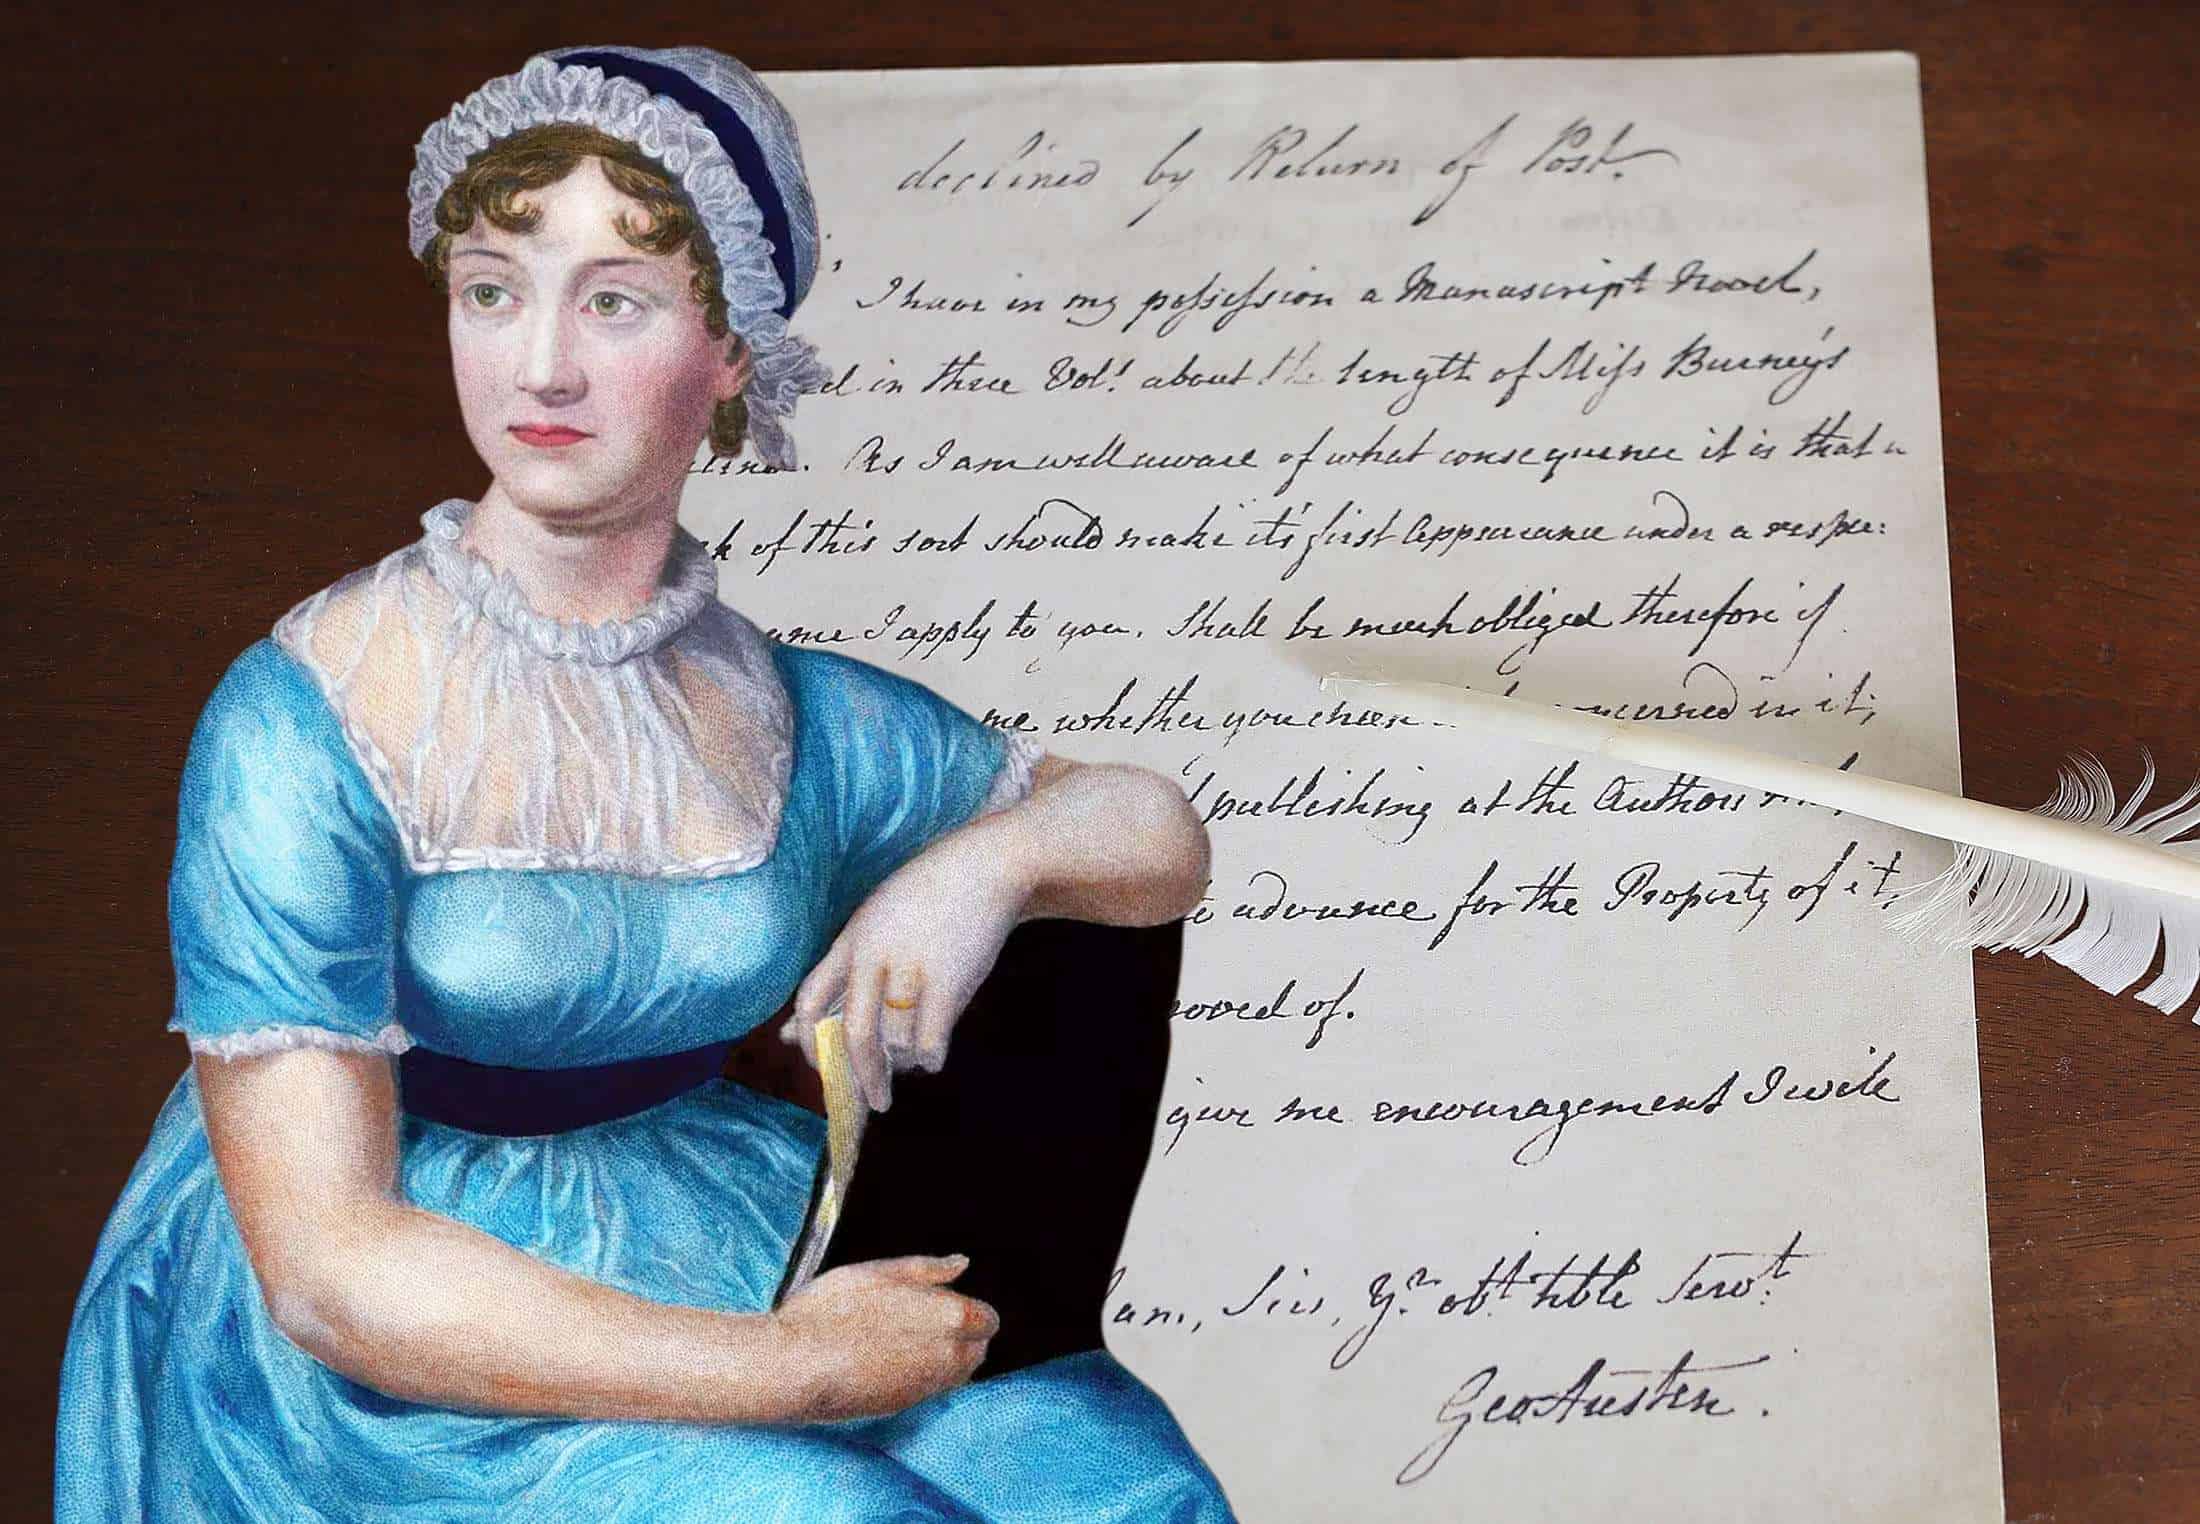 declined by Return of Post.
I have in my possession a Manuscript Novel,
ed in three Vols. about the length of Miss Burney's
elina. As I am well aware of what consequence it is that a
rk of this sort should make it's first Appearance under a respec:
ame I apply to you. Shall be much obliged therefore if
me whether you choose concerned in it;
publishing at the Author's
to advance for the Property of it,
roved of.
give me encouragement I will
am, Sir, Yr. obt. hble Servt.
Geo Austen.